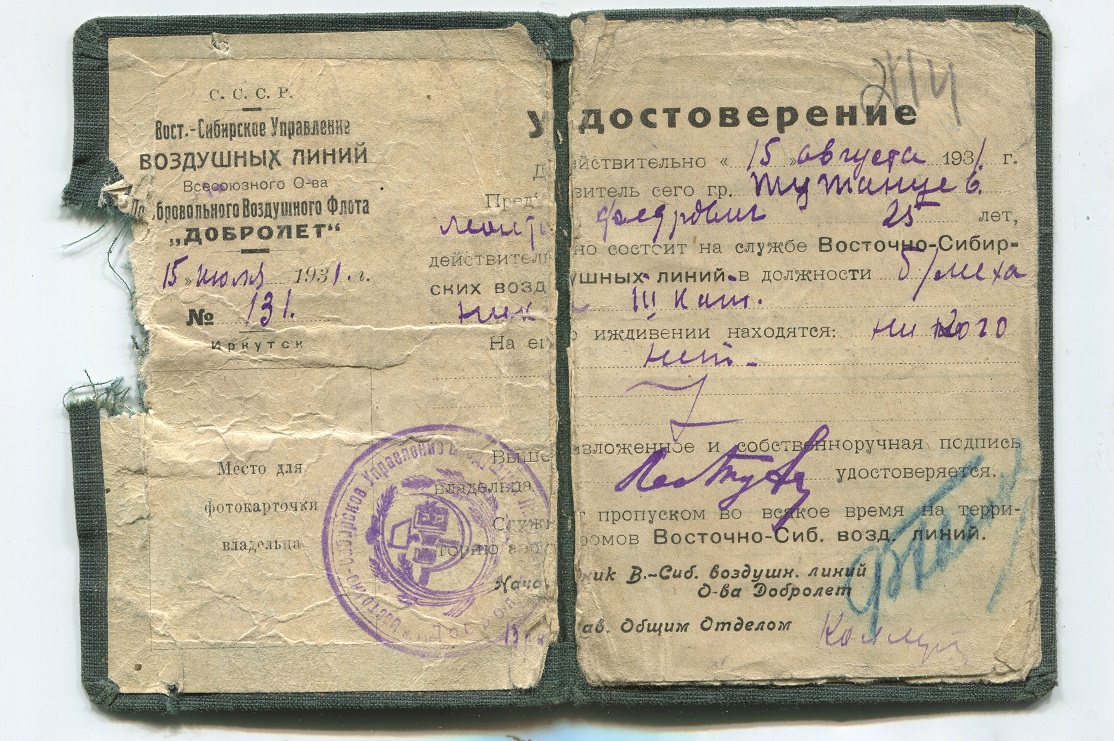 С. С. С. Р.
Вост.-Сибирское Управление
ВОЗДУШНЫХ ЛИНИЙ
Всесоюзного О-ва
Добровольного Воздушного Флота
„ДОБРОЛЕТ“
15 » июля 1931 г.
№ 131.
Иркутск
Место для
фотокарточки
владельца
Удостоверение
Действительно « 15 » августа 1931 г.
Пред витель сего гр.
25 лет,
действительно состоит на службе Восточно-Сибир-
ских воздушных линий в должности б/меха
ника III кат.
На его иждивении находятся: ни кого
нет.
Вышеизложенное и собственноручная подпись
владельца удостоверяется.
Служит пропуском во всякое время на терри-
торию аэродромов Восточно-Сиб. возд. линий.
Начальник В.-Сиб. воздушн. линий
О-ва Добролет
Зав. Общим Отделом